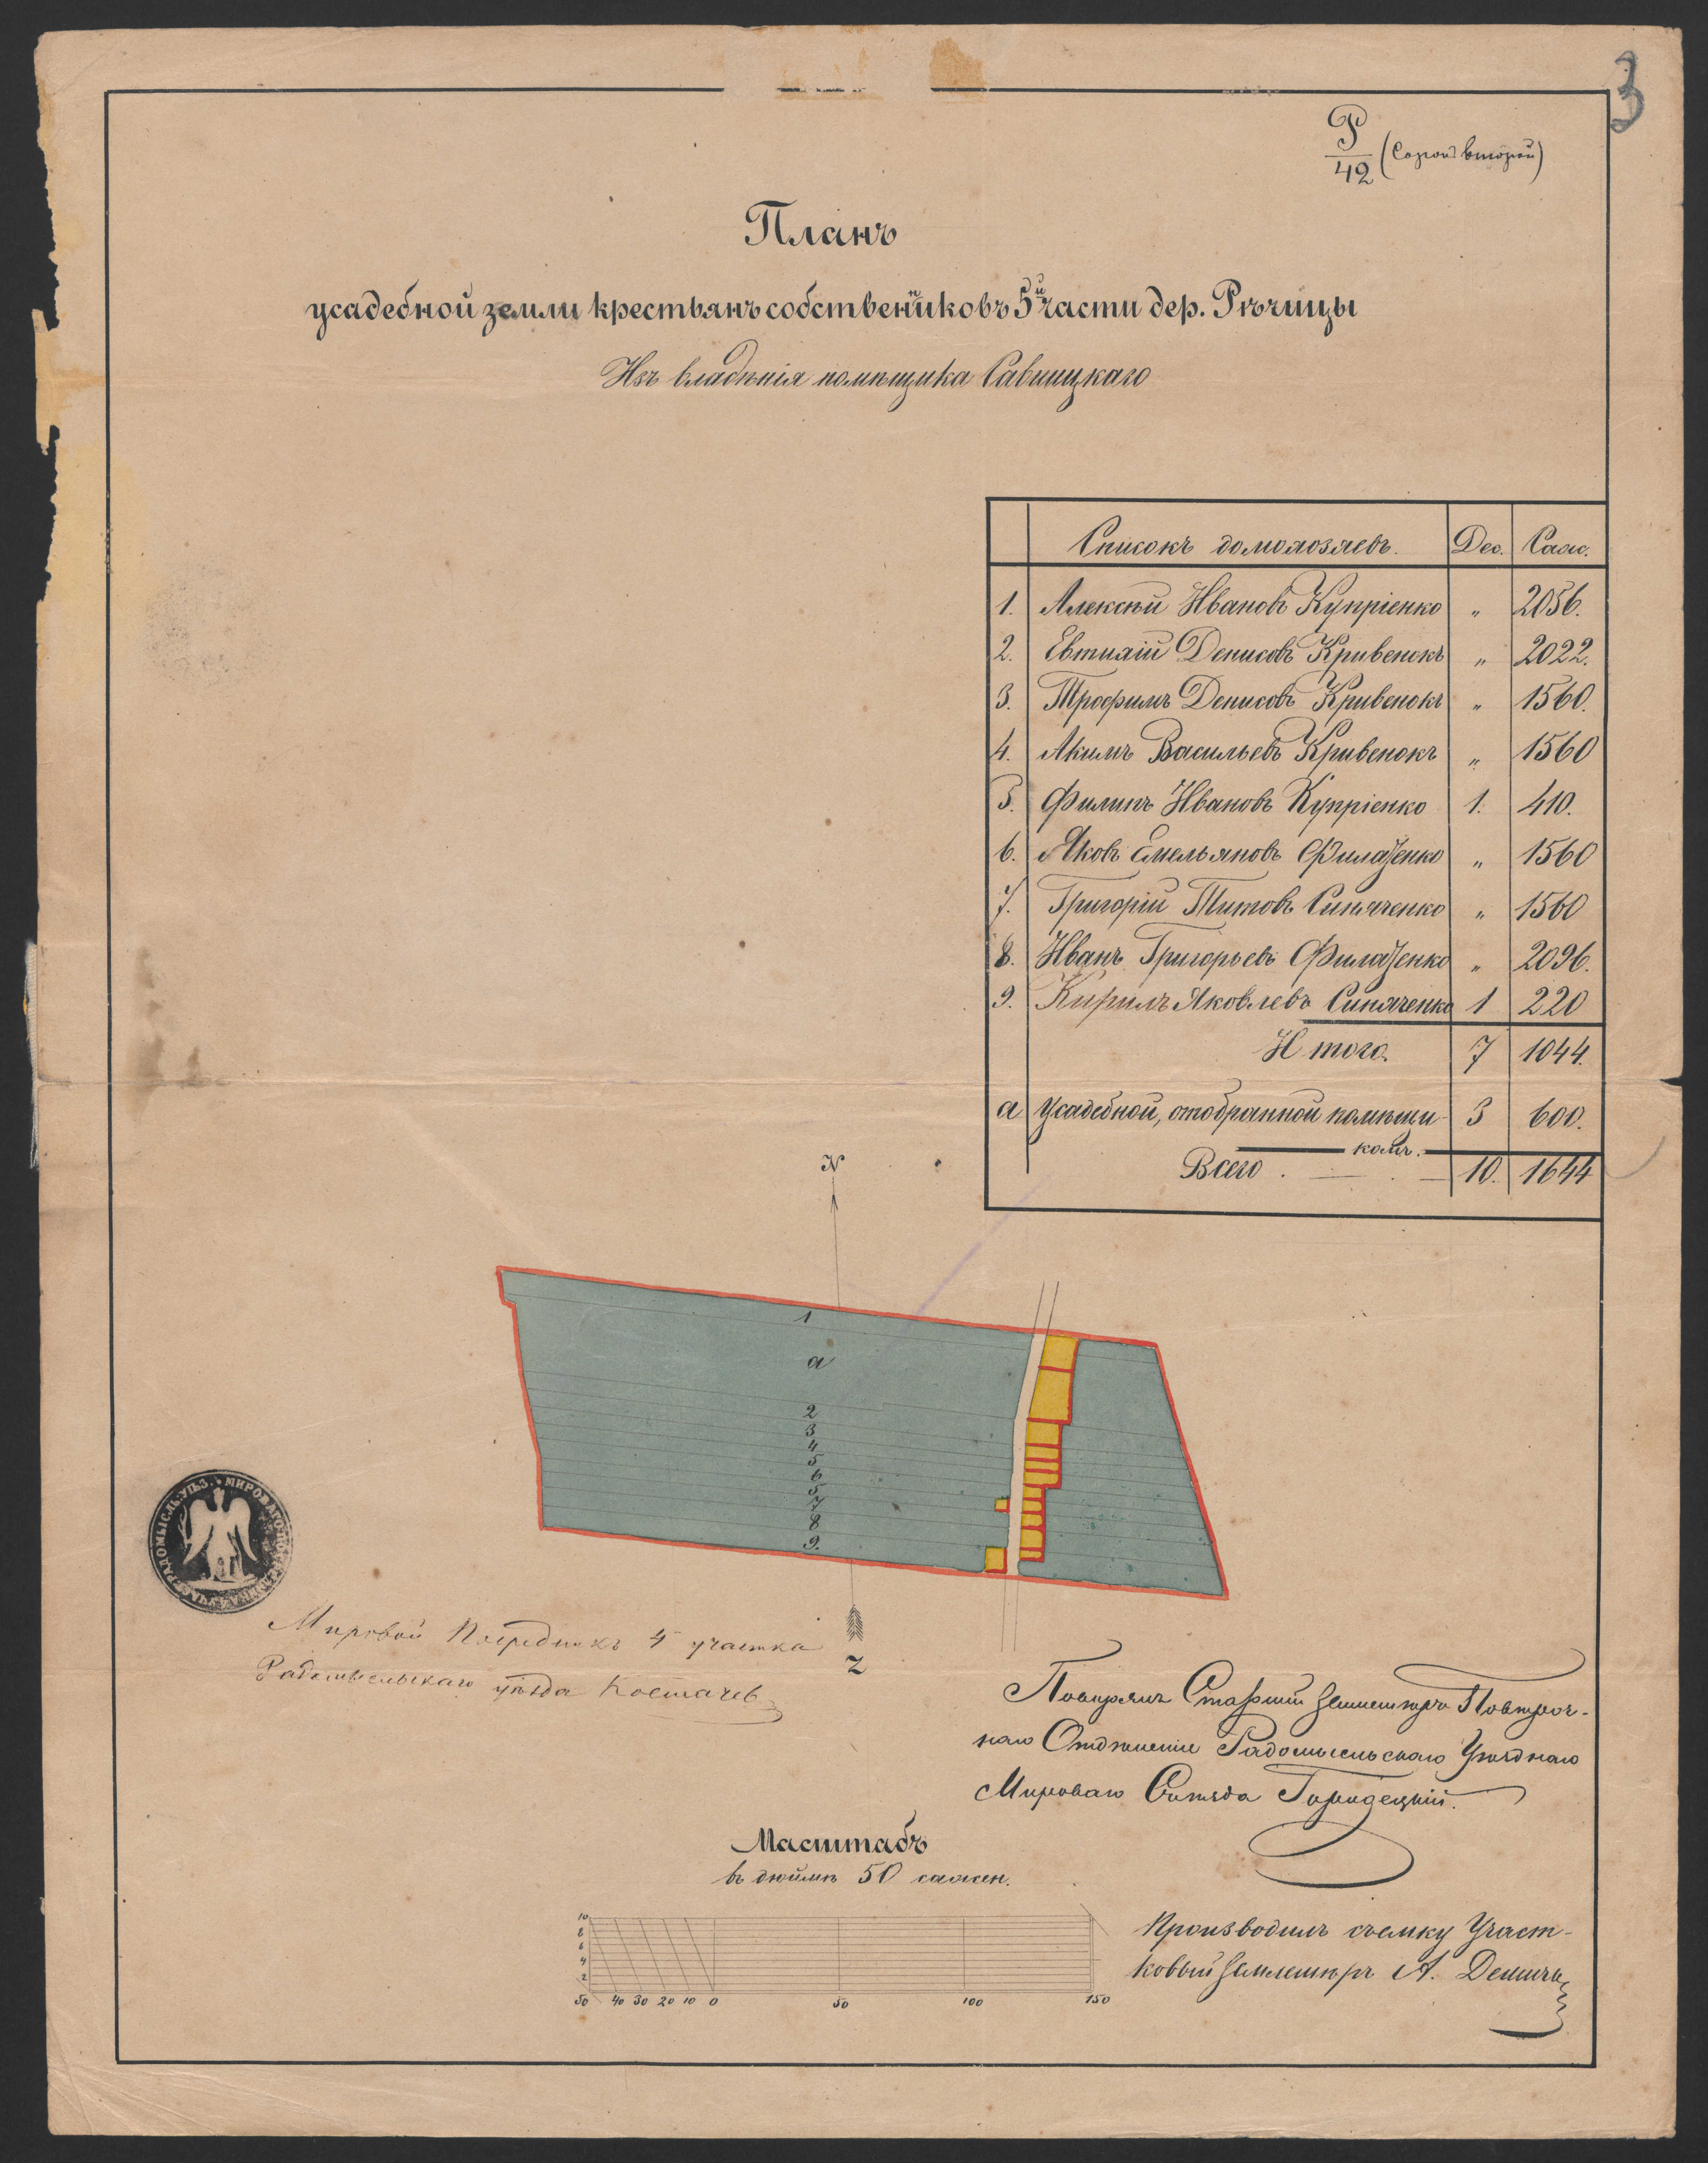 3
Р/42 (Сорокъ второй)
Планъ
усадебной земли крестьянъ собственниковъ 5й части дер. Рѣчицы
Изъ владѣнія помѣщика Савицкаго
Списокъ домохозяевъ. Дес. Саж.
1. Алексѣй Ивановъ Купріенко „ 2056.
2. Евтихій Денисовъ Кривенокъ „ 2022.
3. Трофимъ Денисовъ Кривенокъ „ 1560.
4. Акимъ Васильевъ Кривенокъ „ 1560
5. Филипъ Ивановъ Купріенко 1. 410.
6. Яковъ Емельяновъ Филатенко „ 1560
7. Григорій Титовъ Синяченко „ 1560
8. Иванъ Григорьевъ Филатенко „ 2096.
9. Кирилъ Яковлевъ Синяченко 1 220
Итого. 7 1044.
а Усадебной, отобранной помѣщи- 3 600.
комъ.
Всего . 10. 1644
N
1
а
2
3
4
5
6
5
7
8
9.
Z
РАДОМЫСЛЬ. УѢЗ. МИРОВАГО
Мировой Посредникъ 4 участка
Радомысльскаго уѣзда Костачев
Повѣрялъ Старшій Землемѣръ Повѣроч-
наго Отдѣленія Радомысльскаго Уѣзднаго
Мироваго Съѣзда Городецкій.
Масштабъ
въ дюймѣ 50 сажен.
10
8
6
4
2
50 40 30 20 10 0 50 100 150
Производилъ съемку Участ-
ковый Землемѣръ А. Демичъ